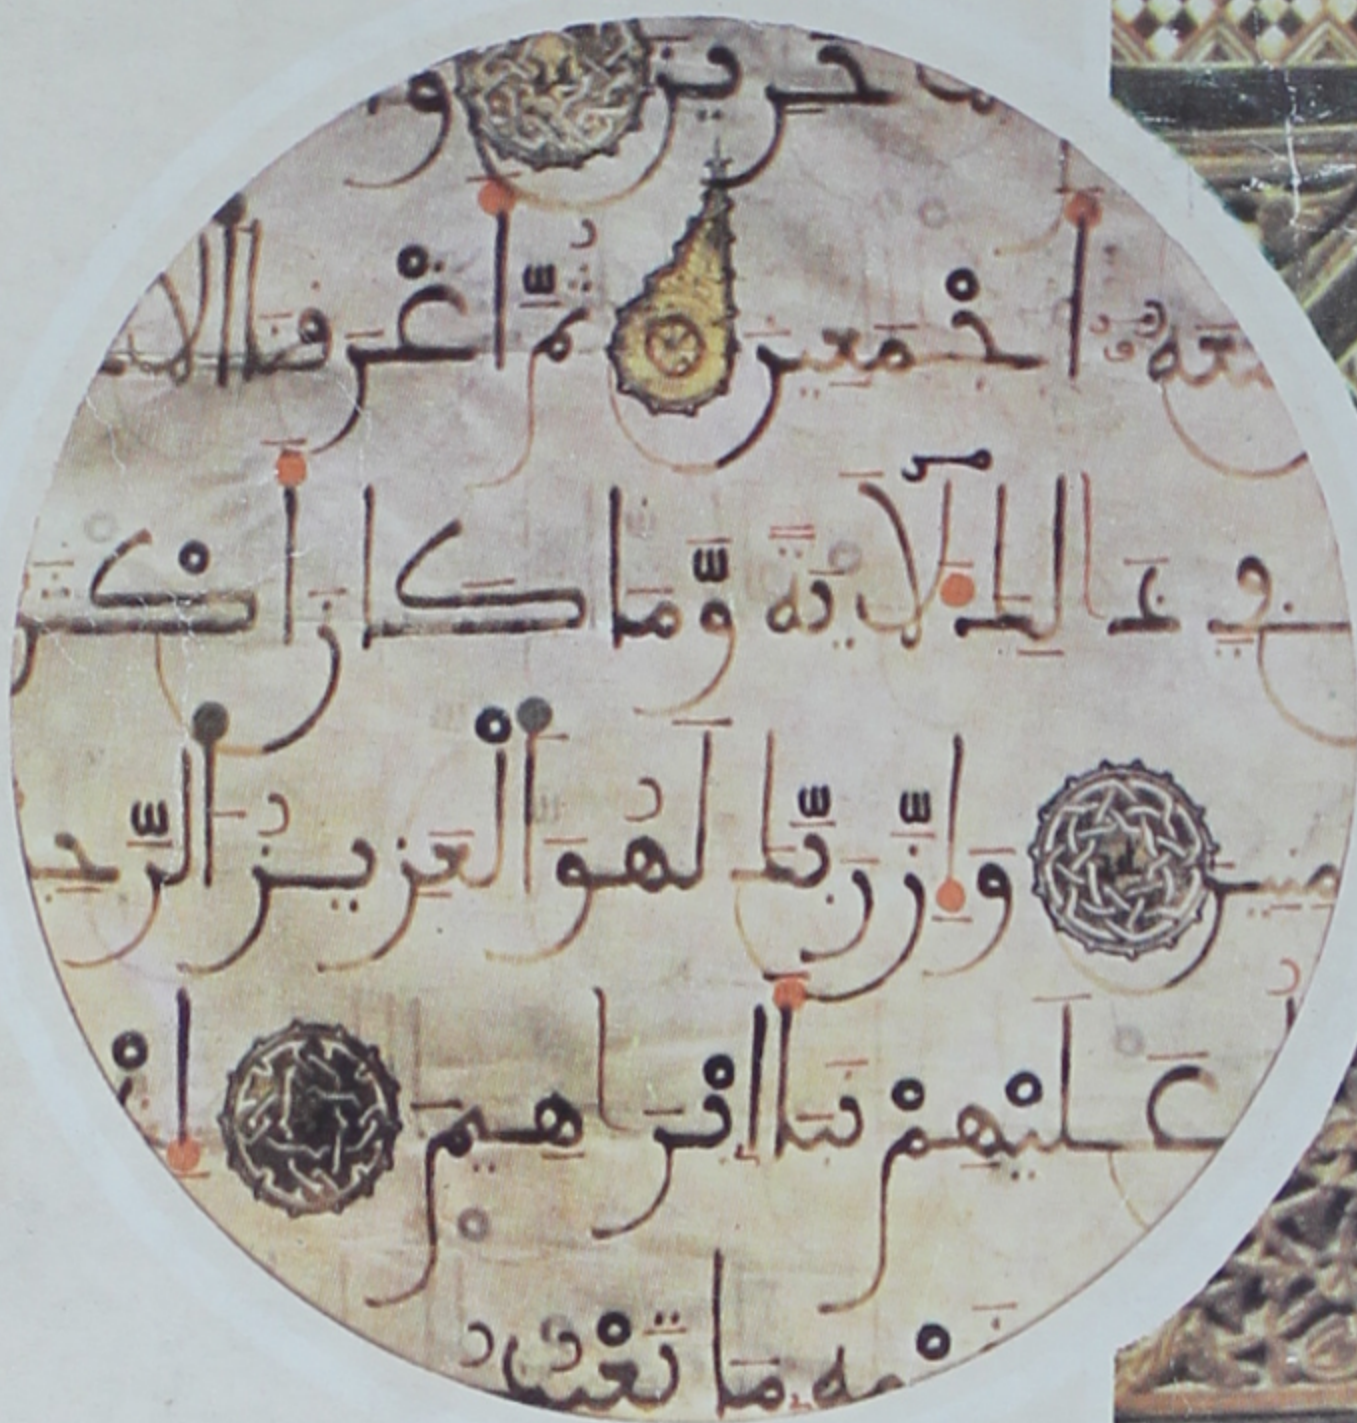 خرين و
معه أَجْمَعِينَ ثُمَّ أَغْرَقْنَا الا
فِي ذَالِكَ لَآيَةً وَّمَا كَانَ أَكْثَر
منِينَ وَإِنَّ رَبَّكَ لَهُوَ الْعَزِيزُ الرَّحِ
عَلَيْهِمْ نَبَأَ ابْرَاهِيمَ إِذْ
وْمِهِ مَا تَعْبُد